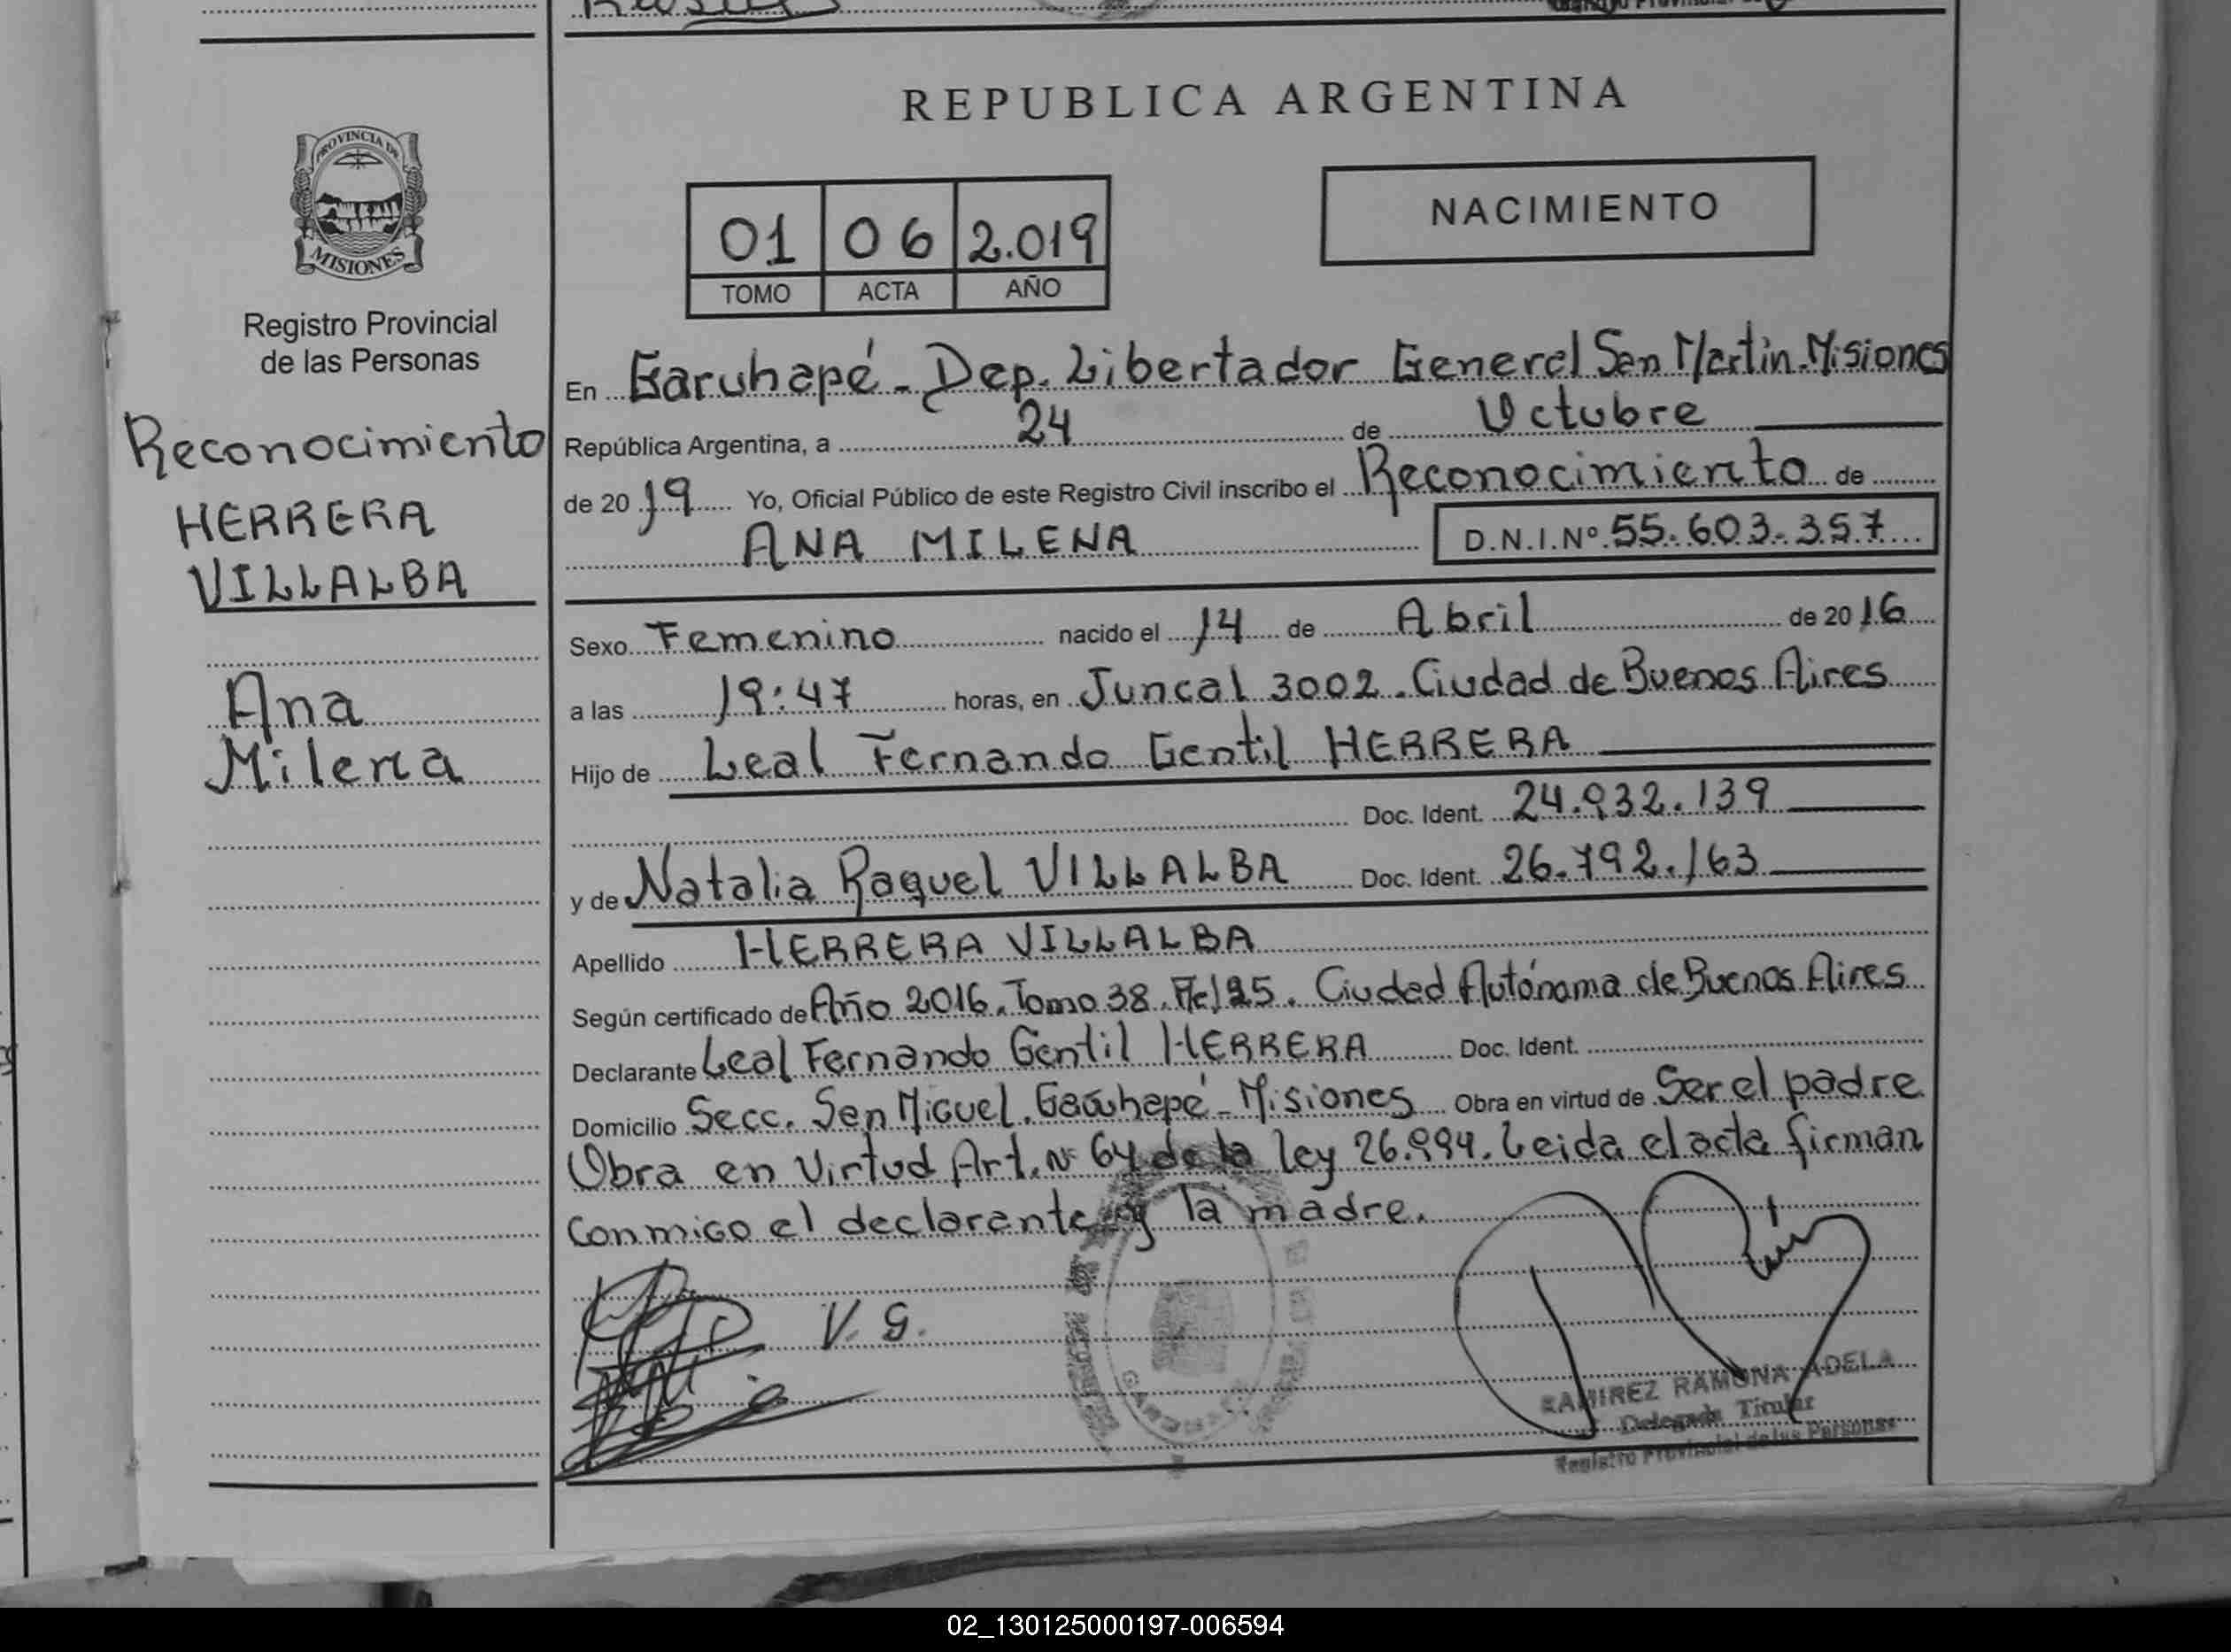 REPUBLICA ARGENTINA
PROVINCIA DE
MISIONES
Registro Provincial
de las Personas
Reconocimiento
HERRERA
VILLALBA
Ana
Milena
01 06 2.019
TOMO ACTA AÑO
NACIMIENTO
En Garuhapé - Dep. Libertador General San Martin. Misiones
República Argentina, a 24 de Octubre
de 2019 Yo, Oficial Público de este Registro Civil inscribo el Reconocimiento de
ANA MILENA D.N.I.Nº 55.603.357
Sexo Femenino nacido el 14 de Abril de 2016
a las 19:47 horas, en Juncal 3002. Ciudad de Buenos Aires
Hijo de Leal Fernando Gentil HERRERA
Doc. Ident. 24.932.139
y de Natalia Raquel VILLALBA Doc. Ident. 26.792.163
Apellido HERRERA VILLALBA
Según certificado de Año 2016. Tomo 38. Ciudad Autónoma de Buenos Aires
Declarante Leal Fernando Gentil HERRERA Doc. Ident.
Domicilio Secc. San Miguel. Misiones Obra en virtud de Ser el padre
Obra en Virtud Art. Nº 64 de la ley 26.994. Leida el acta firman
conmigo el declarante y la madre.
V. G.
RAMIREZ RAMONA ADELA
Delegada Titular
Registro Provincial de las Personas
02_130125000197-006594